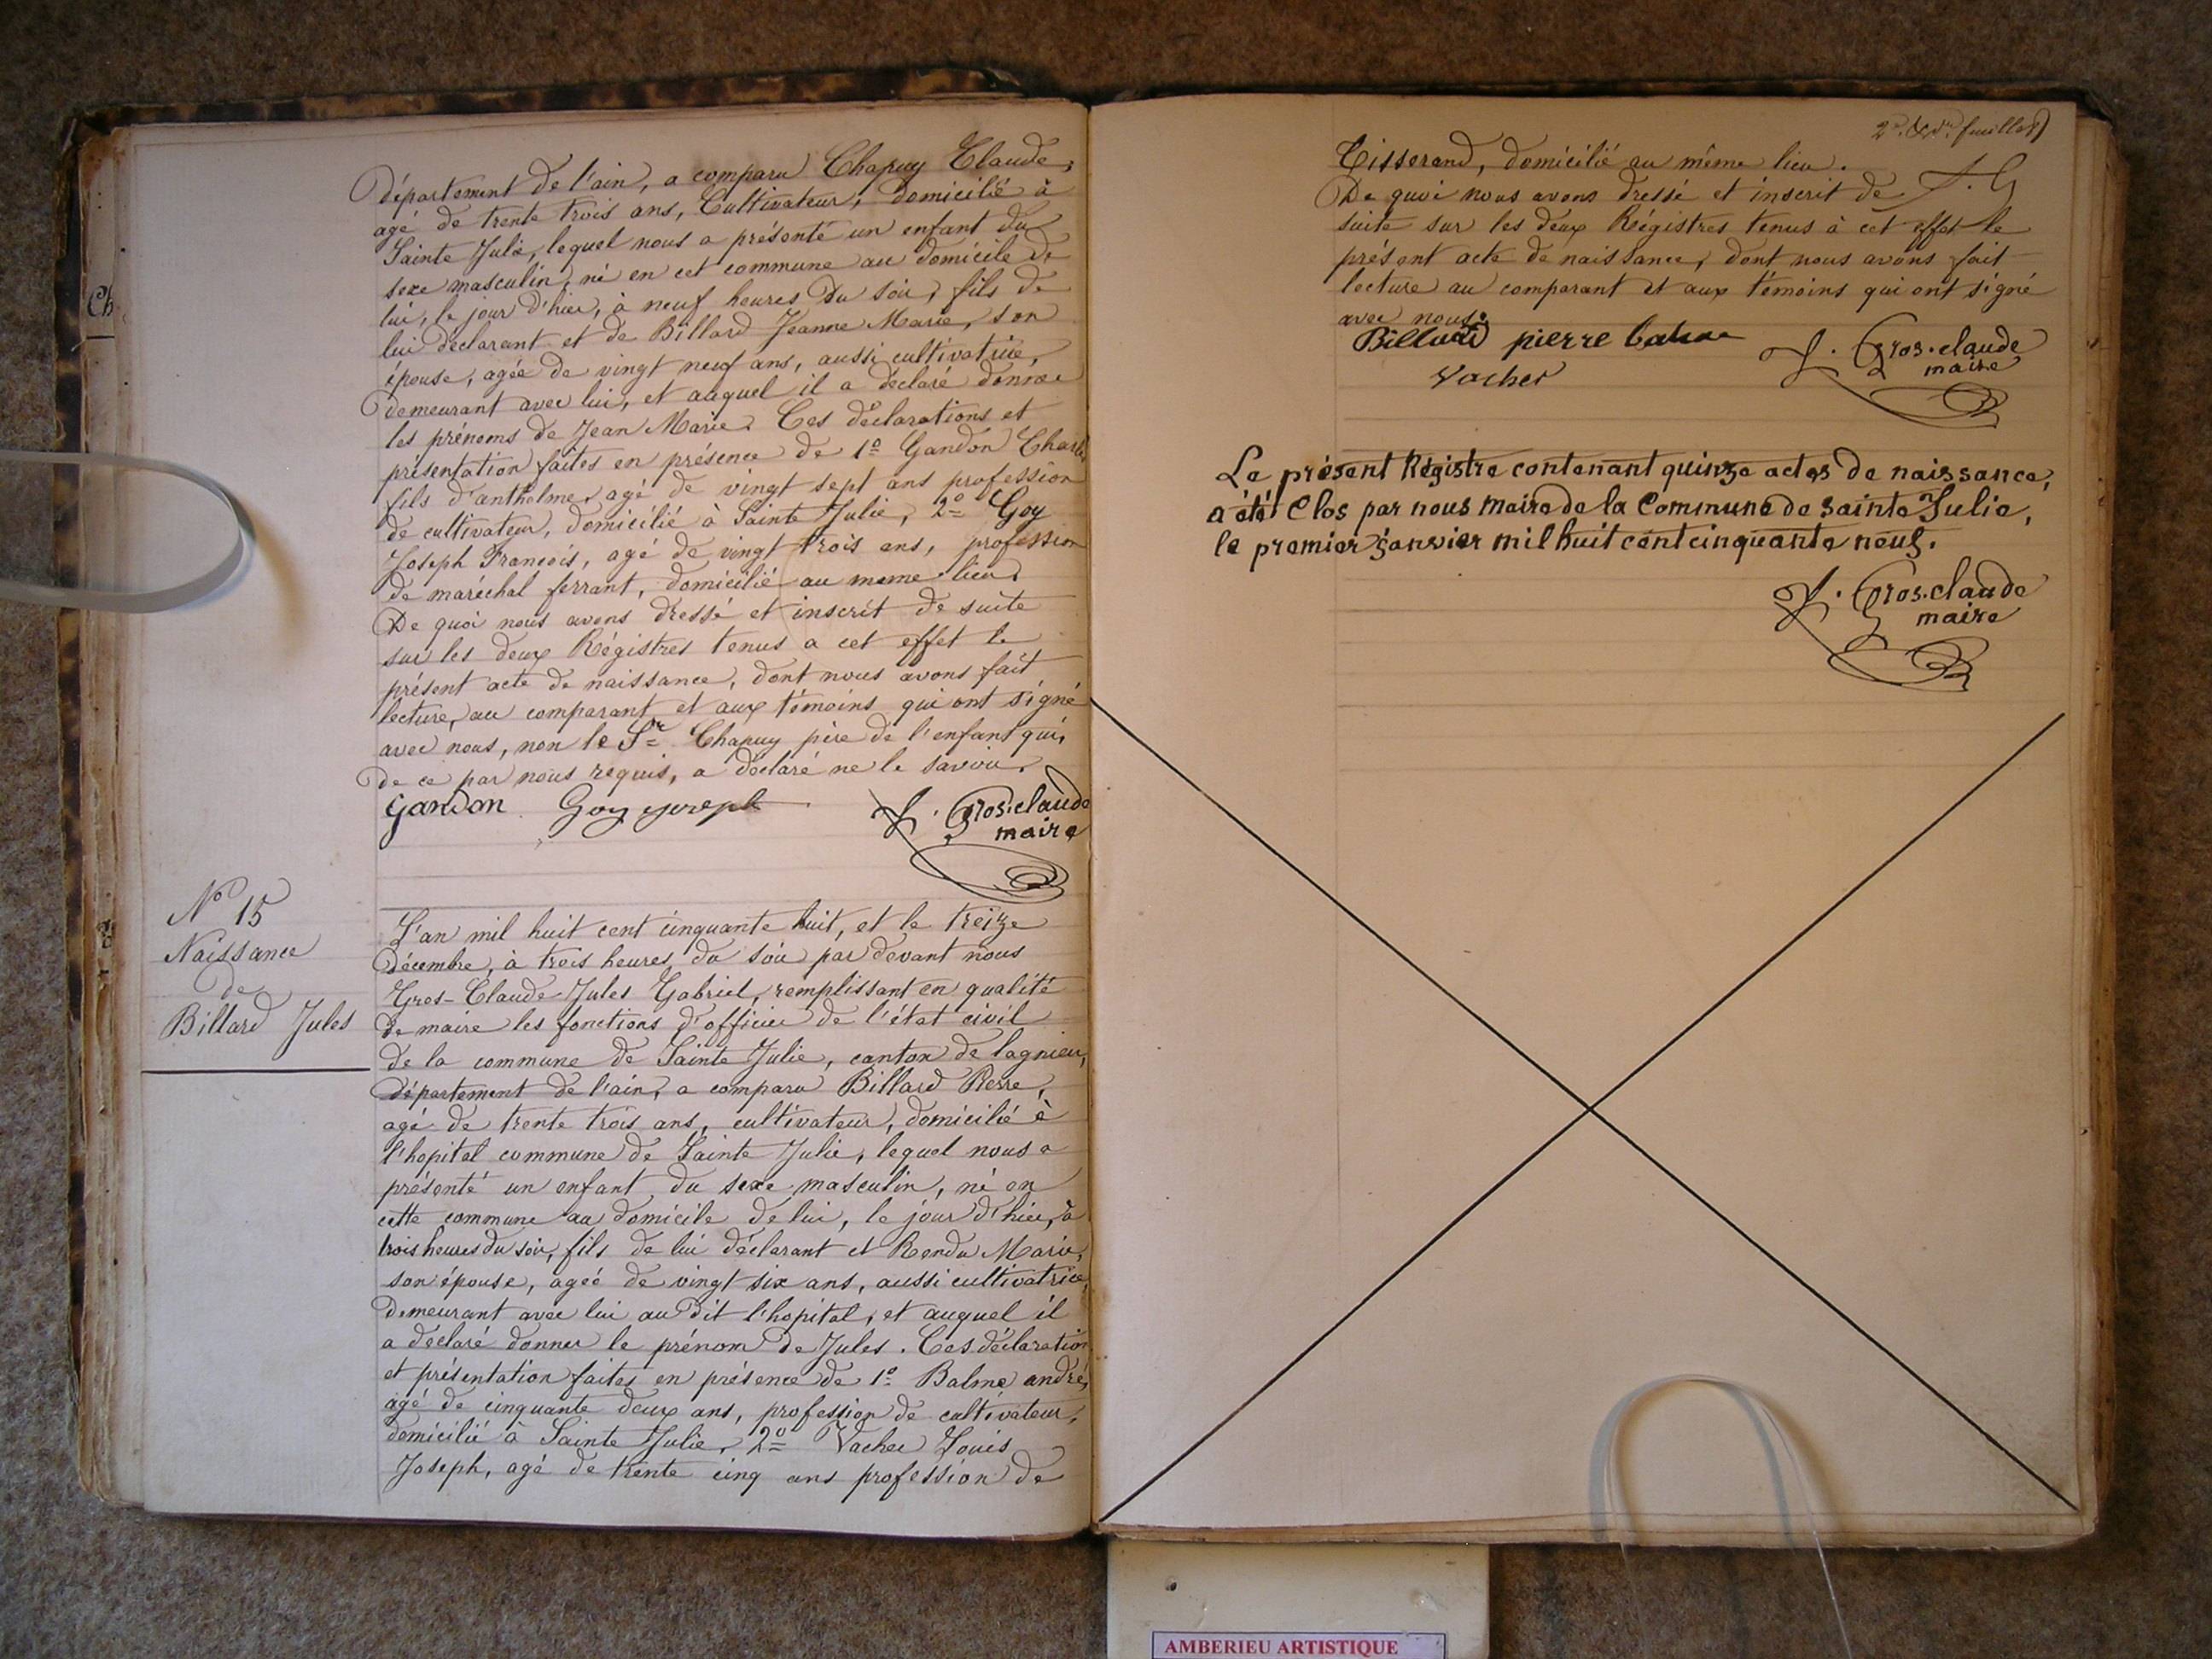 Ch
Département de l'ain, a comparu Chapuy Claude,
agé de trente trois ans, Cultivateur, domicilié à
Sainte Julie, lequel nous a présenté un enfant du
sexe masculin, né en cet commune au domicile de
lui, le jour d'hier, à neuf heures du soir, fils de
lui déclarant et de Billard Jeanne Marie, son
épouse, agée de vingt neuf ans, aussi cultivatrice,
demeurant avec lui, et auquel il a déclaré donner
les prénoms de Jean Marie. Ces déclarations et
présentation faites en présence de 1º Gandon Charles
fils d'anthelme, agé de vingt sept ans profession
de cultivateur, domicilié à Sainte Julie, 2º Goy
Joseph François, agé de vingt trois ans, profession
de maréchal ferrant, domicilié au meme lieu.
De quoi nous avons dressé et inscrit de suite
sur les deux Régistres tenus a cet effet le
présent acte de naissance, dont nous avons fait
lecture, au comparant et aux témoins qui ont signé
avec nous, non le Sr Chapuy père de l'enfant qui,
de ce par nous requis, a déclaré ne le savoir.
Gandon Goy joseph J. Gros.claude
maire
Nº 15
Naissance
de
Billard Jules
L'an mil huit cent cinquante huit, et le treize
décembre, à trois heures du soir par devant nous
Gros-Claude Jules Gabriel, remplissant en qualité
de maire les fonctions d'officier de l'état civil
de la commune de Sainte Julie, canton de lagnieu,
département de l'ain, a comparu Billard Pierre,
agé de trente trois ans, cultivateur, domicilié à
l'hopital commune de Sainte Julie, lequel nous a
présenté un enfant du sexe masculin, né en
cette commune au domicile de lui, le jour d'hier, à
trois heures du soir, fils de lui déclarant et Rendu Marie,
son épouse, ageé de vingt six ans, aussi cultivatrice,
demeurant avec lui au dit l'hopital, et auquel il
a déclaré donner le prénom de Jules. Ces déclaration
et présentation faites en présence de 1º Balme andré,
agé de cinquante deux ans, profession de cultivateur,
domicilié à Sainte Julie, 2º Vacher Louis
Joseph, agé de trente cinq ans profession de
feuillet
Tisserand, domicilié au même lieu.
De quoi nous avons dressé et inscrit de J. G
suite sur les deux Régistres tenus à cet effet le
présent acte de naissance, dont nous avons fait
lecture au comparant et aux témoins qui ont signé
avec nous.
Billard pierre J. Gros.claude
Vacher maire
Le présent Régistre contenant quinze actes de naissance,
a été Clos par nous Maire de la Commune de Sainte Julie,
le premier janvier mil huit cent cinquante neuf.
J. Gros.claude
maire
AMBERIEU ARTISTIQUE